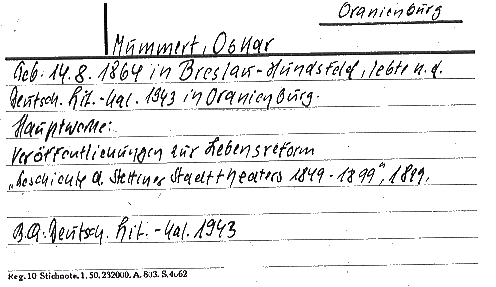 Oranienburg
Mummert, Oskar
Geb. 14.8.1864 in Breslau-Hundsfeld, lebte n.d.
Deutsch. Lit.-Kal. 1943 in Oranienburg.
Hauptwerke:
Veröffentlichungen zur Lebensreform
„Geschichte d. Stettiner Stadttheaters 1849-1899", 1899.
B.Q. Deutsch. Lit.-Kal. 1943
Reg. 10 Stichnote. 1. 50. 232000. A. 803. S. 4062